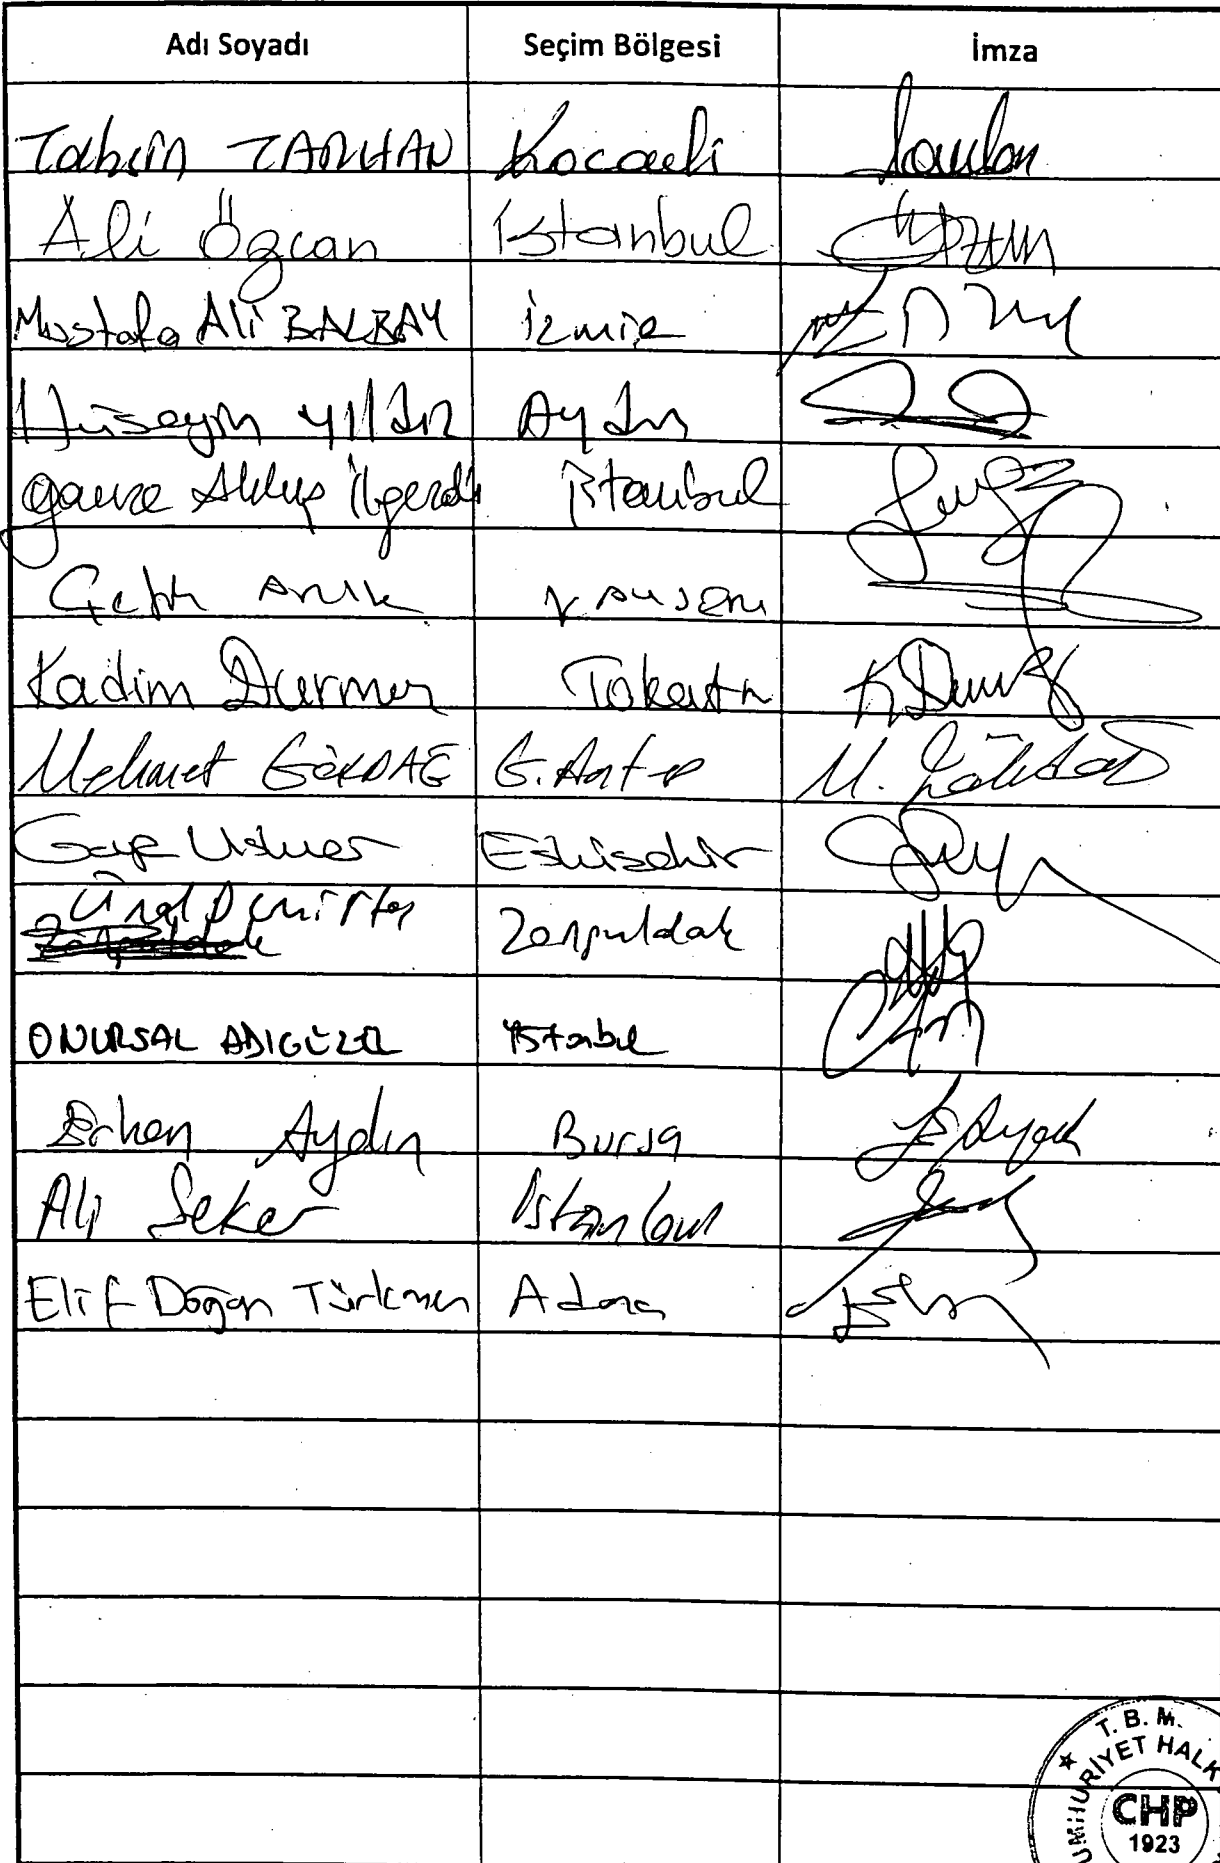 Adı Soyadı Seçim Bölgesi İmza
Tahsin TARHAN Kocaeli
Ali Özcan İstanbul
Mustafa Ali BALBAY İzmir
Hüseyin Yıldız Aydın
Gamze Akkuş İlgezdi İstanbul
Çetin Arık Kayseri
Kadim Durmaz Tokat K Durmaz
Mehmet GÖKDAĞ G.Antep M. Gökdağ
Gaye Usluer Eskişehir
Ünal Demirtaş
Zonguldak Zonguldak
ONURSAL ADIGÜZEL İstanbul
Erkan Aydın Bursa
Ali Şeker İstanbul
Elif Doğan Türkmen Adana
T. B. M.
UMHURİYET HALK
CHP
1923